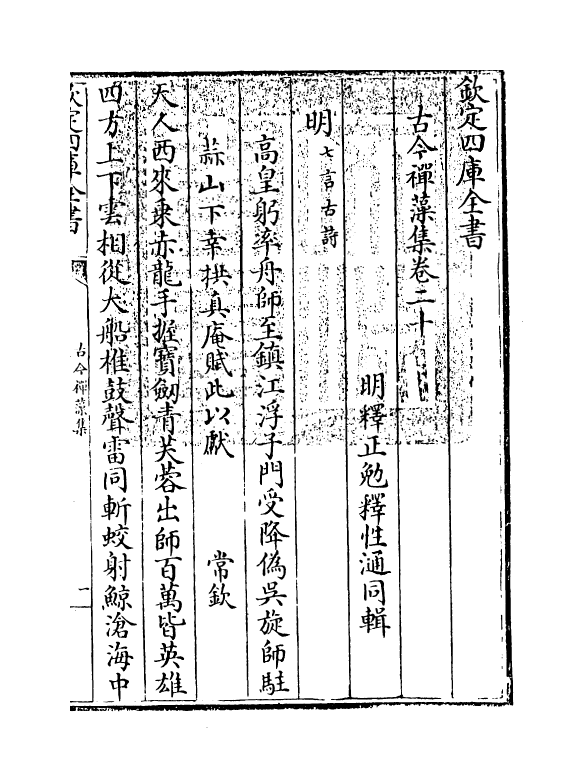 欽定四庫全書
古今禪藻集卷二十
明釋正勉釋性㴋同輯
明七言古詩
高皇躬率舟師至鎮江浮子門受降偽吳旋師駐
蒜山下幸拱真庵賦此以獻　常欽
天人西來乗赤龍手握寳劒青芙蓉出師百萬皆英雄
四方上下雲相從大船椎鼓聲雷同斬蛟射鯨滄海中
欽定四庫全書
古今禪藻集
一